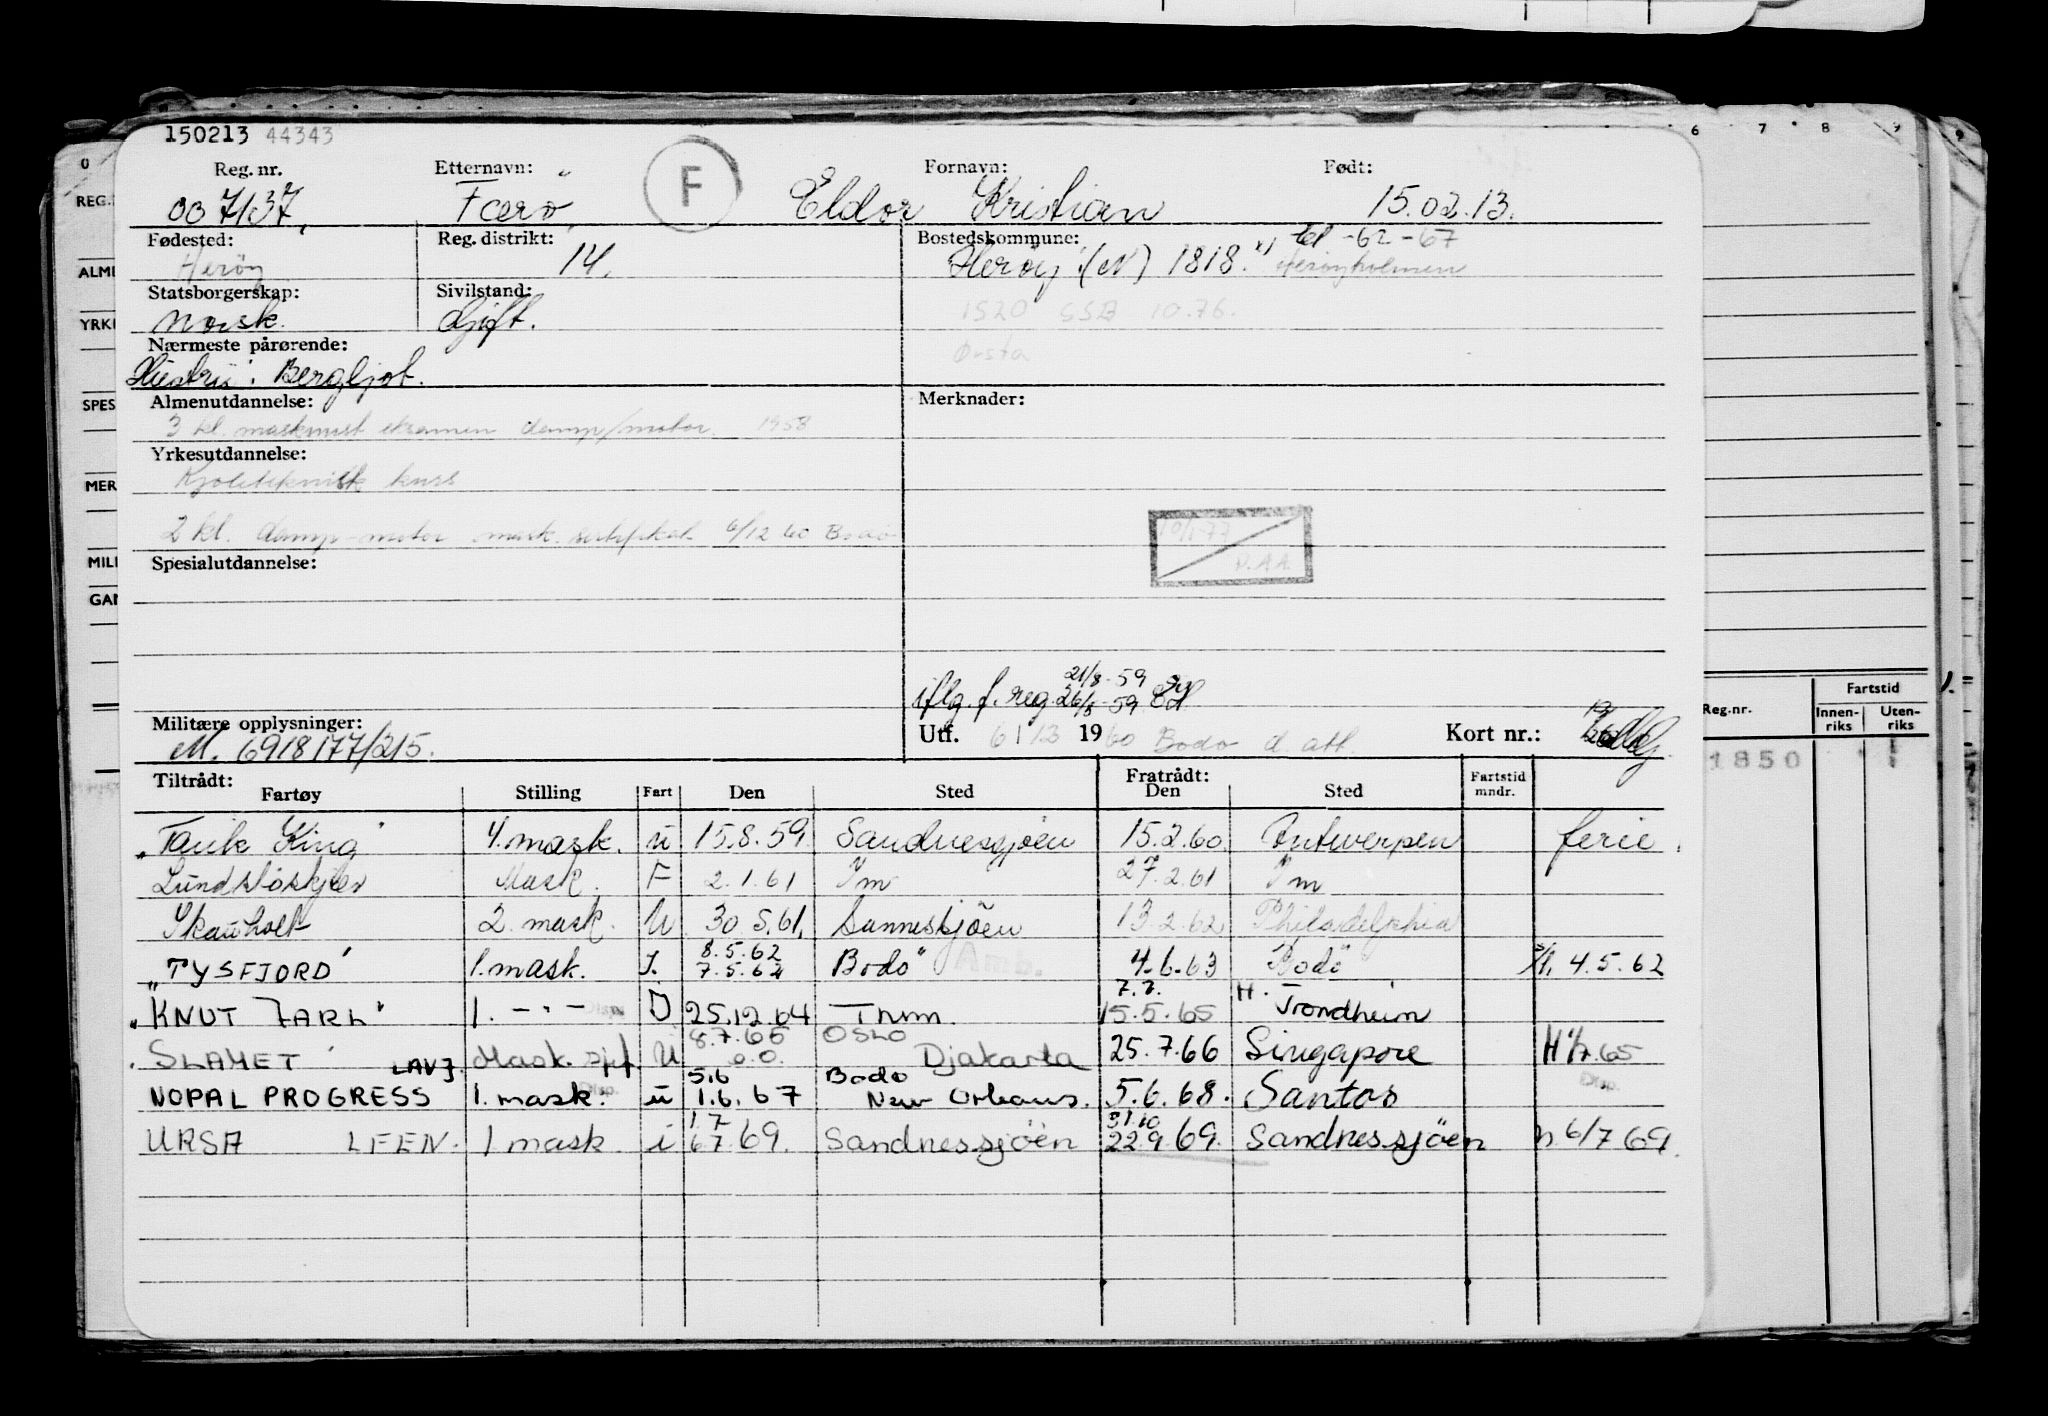 150213 44343
Reg. nr. Etternavn: F Fornavn: Født:
007137, Færö Eldor Kristian 15.02.13.
Fødested: Reg. distrikt: Bostedskommune: 61-62-67
Heröy 14. Heröy (N) 1818. Heröyholmen
Statsborgerskap: Sivilstand:
norsk. Gift. 1520 SSB 10.76.
Nærmeste pårørende: Ørsta
Hustru: Bergljot.
Almenutdannelse: Merknader:
3 kl. maskinist eksamen damp/motor 1958
Yrkesutdannelse:
Kjöleteknisk kurs
2 kl. damp-motor mask. sertifikat 6/12 60 Bodö
10/1-77
P.A.A.
Spesialutdannelse:
21/8-59
iflg. f. reg. 26/8-59
Militære opplysninger: Utf. 6/12 1960 Bodö d. att. Kort nr.:
M. 6918177/215.
Tiltrådt: Fratrådt:
Fartøy Stilling Fart Den Sted Den Sted Fartstid mndr.
"Tank King" 4. mask. u 15.8.59 Sandnessjöen 15.2.60 Antwerpen ferie.
Mask. F 2.1.61 Im 27.2.61 Im
Skauholt 2. mask. U 30.5.61, Sannesjöen 13.2.62 Philadelphia
8.5.62
"TYSFJORD" 1. mask. I. 7.5.62 Bodö Amb. 4.6.63 Bodö 4.5.62
7.7. H.
"KNUT JARL" 1. -"- Disp. I 25.12.64 Thm. 15.5.65 Trondheim
8.7.65 OSLO
SLAMET LAVJ. Mask. sjef U o.o. Djakarta 25.7.66 Singapore H 1/7.65
5.6 Bodö Disp.
NOPAL PROGRESS 1. mask. Disp. u 1.6.67 New Orleans. 5.6.68. Santos
1.7 31.10
URSA LEEN. 1 mask i 6.7.69. Sandnessjöen 22.9.69. Sandnessjöen h. 6/7 69.
0 6 7 8 9
REG.
ALME
YRKE
SPES
MER
MILI
GAN
Reg.nr. Fartstid
Innen-riks Uten-riks
1850